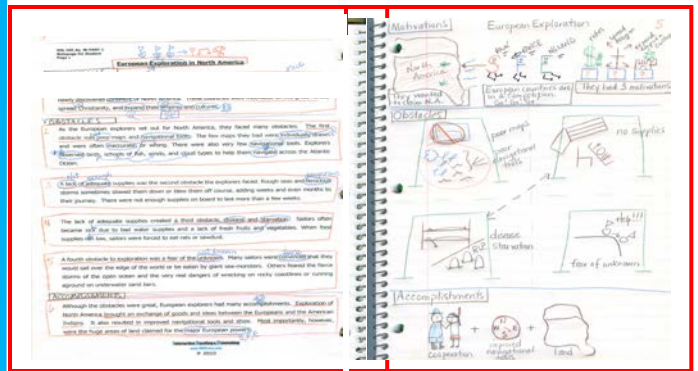 European Exploration in North America
spread Christianity, and expand their empires and cultures.
OBSTACLES
As the European explorers set out for North America, they faced many obstacles. The first
obstacle was poor maps and navigational tools. The few maps they had were individually drawn
and were often inaccurate or wrong. There were also very few navigational tools. Explorers
observed birds, schools of fish, winds, and cloud types to help them navigate across the Atlantic
Ocean.
3 A lack of adequate supplies was the second obstacle the explorers faced. Rough seas and ferocious
storms sometimes slowed them down or blew them off course, adding weeks and even months to
their journey. There were not enough supplies on board to last more than a few weeks.
4 The lack of adequate supplies created a third obstacle, disease and starvation. Sailors often
became sick due to bad water supplies and a lack of fresh fruits and vegetables. When food
supplies ran low, sailors were forced to eat rats or sawdust.
5 A fourth obstacle to exploration was a fear of the unknown. Many sailors were convinced that they
would sail over the edge of the world or be eaten by giant sea-monsters. Others feared the fierce
storms of the open ocean and the very real dangers of wrecking on rocky coastlines or running
aground on underwater sand bars.
ACCOMPLISHMENTS
6 Although the obstacles were great, European explorers had many accomplishments. Exploration of
North America brought an exchange of goods and ideas between the Europeans and the American
Indians. It also resulted in improved navigational tools and ships. Most importantly, however,
were the huge areas of land claimed for the major European powers.
© 2010
Motivations
European Exploration
5
North
America
They wanted
to claim N.A.
European countries are
in a competition.
They had 3 motivations
Obstacles
poor maps
poor
navigational
tools
no supplies
disease
starvation
RIP
help!!!
fear of unknown
Accomplishments
cooperation
+
improved
navigational
tools
+
land